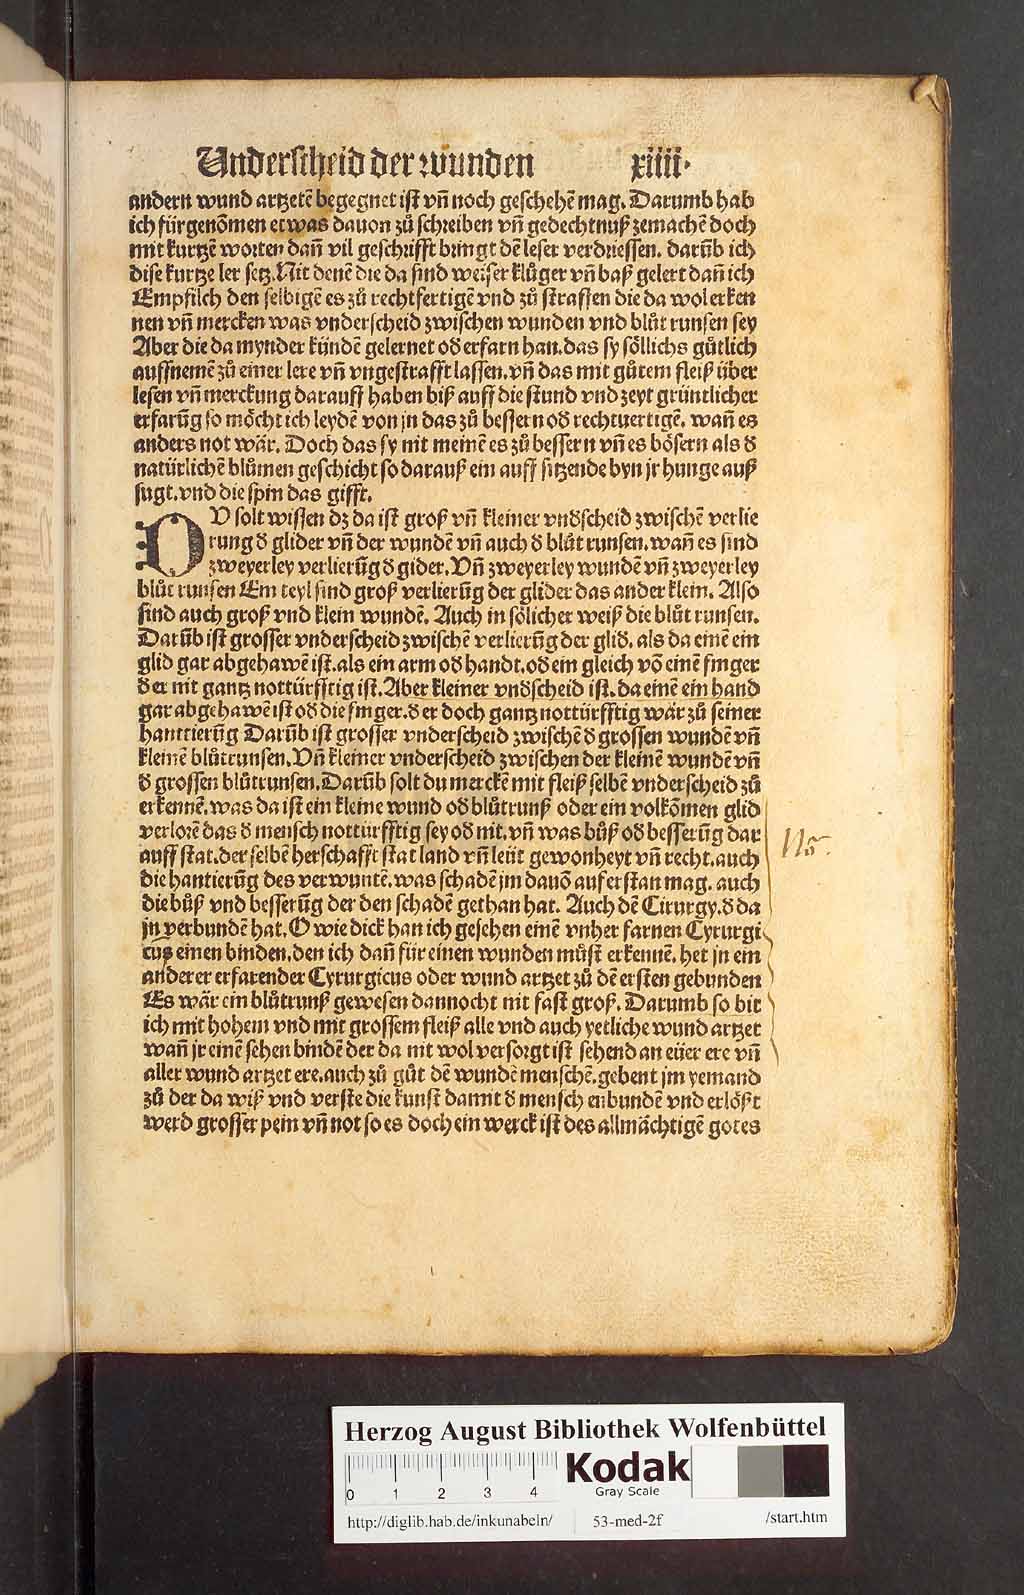 Underscheid der wunden xiiii.
andern wund artzetē begegnet ist vn̄ noch geschehē mag. Darumb hab
ich fürgenōmen etwas dauon zů schreiben vn̄ gedechtnuß zemachē doch
mit kurtzē worten dan̄ vil geschrifft bringt dē leser verdriessen. darūb ich
dise kurtze ler setz. Nit denē die da sind weiser klůger vn̄ baß gelert dan̄ ich
Empfilch den selbigē es zů rechtfertigē vnd zů straffen die da wol erken
nen vn̄ mercken was vnderscheid zwischen wunden vnd blůt runsen sey
Aber die da mynder kündē gelernet od̄ erfarn han. das sy söllichs gůtlich
auffnemē zů einer lere vn̄ vngestrafft lassen. vn̄ das mit gůtem fleiß über
lesen vn̄ merckung darauff haben biß auff die stund vnd zeyt grüntlicher
erfarūg so möcht ich leydē von jn das zů bessern od̄ rechtuertigē. wan̄ es
anders not wär. Doch das sy nit meinē es zů bessern vn̄ es bösern als d̄
natürlichē blůmen geschicht so darauß ein auff sitzende byn jr hunge auß
sugt. vnd die spin das gifft.
DV solt wissen dz da ist groß vn̄ kleiner vnd̄scheid zwischē verlie
rung d̄ glider vn̄ der wundē vn̄ auch d̄ blůt runsen. wan̄ es sind
zweyerley verlierūg d̄ gider. Vn̄ zweyerley wundē vn̄ zweyerley
blůt runsen Ein teyl sind groß verlierūg der glider das ander klein. Also
sind auch groß vnd klein wundē. Auch in sölicher weiß die blůt runsen.
Darūb ist grosser vnderscheid zwischē verlierūg der glid̄. als da einē ein
glid gar abgehawē ist. als ein arm od̄ handt. od̄ ein gleich vō einē finger
d̄ er nit gantz nottürfftig ist. Aber kleiner vnd̄scheid ist. da einē ein hand
gar abgehawē ist od̄ die finger. d̄ er doch gantz nottürfftig wär zů seiner
hanttierūg Darūb ist grosser vnderscheid zwischē d̄ grossen wundē vn̄
kleinē blůtrunsen. Vn̄ kleiner vnderscheid zwischen der kleinē wundē vn̄
d̄ grossen blůtrunsen. Darūb solt du merckē mit fleiß selbē vnderscheid zů
erkennē. was da ist ein kleine wund od̄ blůtrunß oder ein volkōmen glid
verlorē das d̄ mensch nottürfftig sey od̄ nit. vn̄ was bůß od̄ besserūg dar
auff stat. der selbē herschafft stat land vn̄ leüt gewonheyt vn̄ recht. auch
die hantierūg des verwuntē. was schadē jm dauō auferstan mag. auch
die bůß vnd besserūg der den schadē gethan hat. Auch dē Cirurgy. d̄ da
jn verbundē hat. O wie dick han ich gesehen einē vnher farnen Cyrurgi
cus einen binden. den ich dan̄ für einen wunden můst erkennē. het jn ein
anderer erfarender Cyrurgicus oder wund artzet zů dē ersten gebunden
Es wär ein blůtrunß gewesen dannocht nit fast groß. Darumb so bit
ich mit hohem vnd mit grossem fleiß alle vnd auch yetliche wund artzet
wan̄ jr einē sehen bindē der da nit wol versorgt ist sehend an eüer ere vn̄
aller wund artzet ere. auch zů gůt dē wundē menschē. gebent jm yemand
zů der da wiß vnd verste die kunst damit d̄ mensch enbundē vnd erlößt
werd grosser pein vn̄ not so es doch ein werck ist des allmächtigē gotes
Herzog August Bibliothek Wolfenbüttel
0 1 2 3 4
Kodak
Gray Scale
http://diglib.hab.de/inkunabeln/ 53-med-2f /start.htm